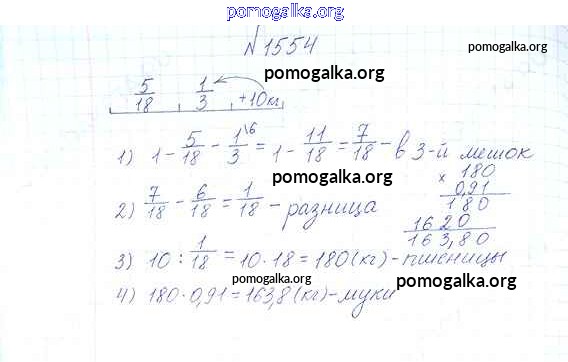 pomogalka.org
N 1554
pomogalka.org
pomogalka.org
5/18 1/3 +10кг
1) 1 - 5/18 - 1/3 \6 = 1 - 11/18 = 7/18 - в 3-й мешок
pomogalka.org
2) 7/18 - 6/18 = 1/18 - разница
× 180
0,91
180
1620
163,80
3) 10 : 1/18 = 10 · 18 = 180 (кг) - пшеницы
pomogalka.org
pomogalka.org
4) 180 · 0,91 = 163,8 (кг) - муки
pomogalka.org